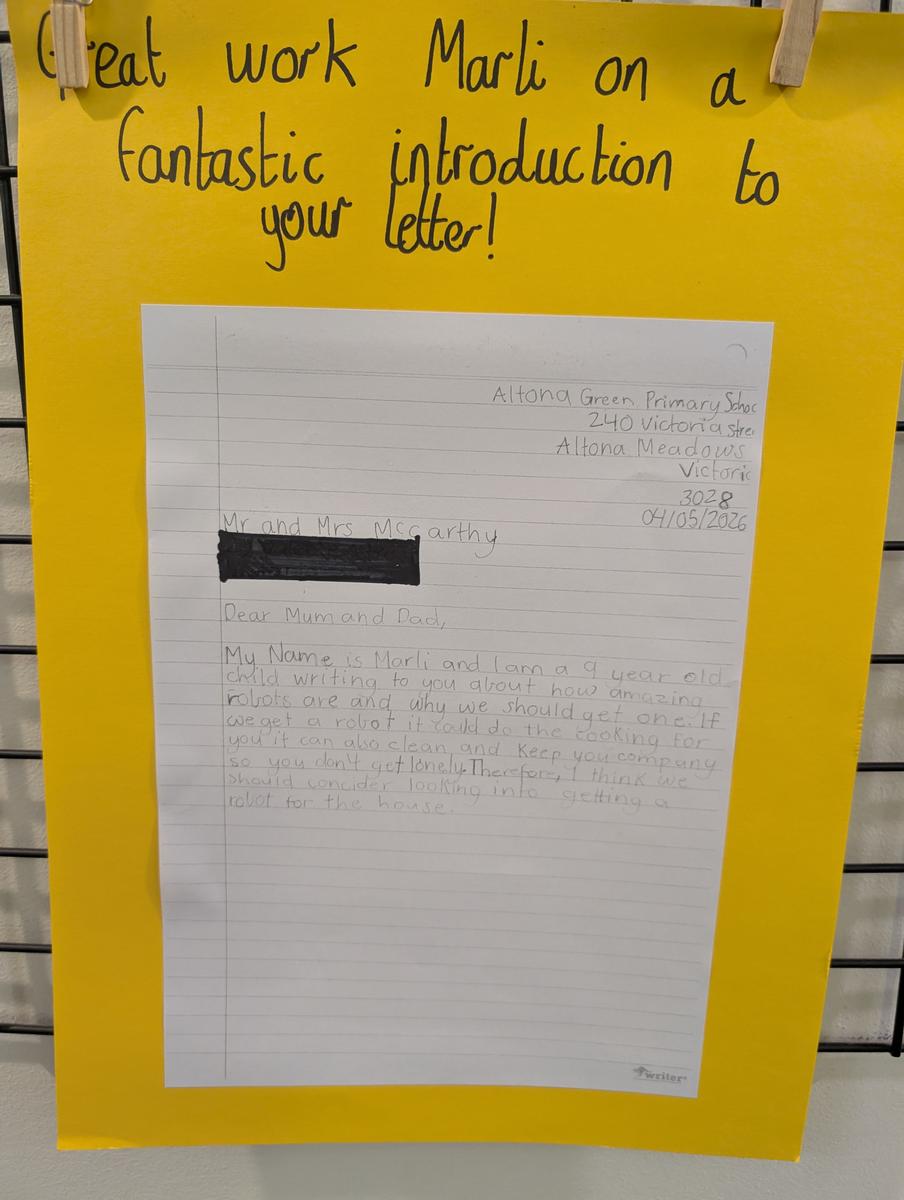 Great work Marli on a
fantastic introduction to
your letter!
Altona Green Primary Schoo
240 Victoria stree
Altona Meadows
Victoria
3028
04/05/2026
Mr and Mrs McCarthy
Dear Mum and Dad,
My Name is Marli and I am a 9 year old
child writing to you about how amazing
robots are and why we should get one. If
we get a robot it could do the cooking for
you it can also clean, and keep you company
so you don't get lonely. Therefore, I think we
should concider looking into getting a
robot for the house.
writer